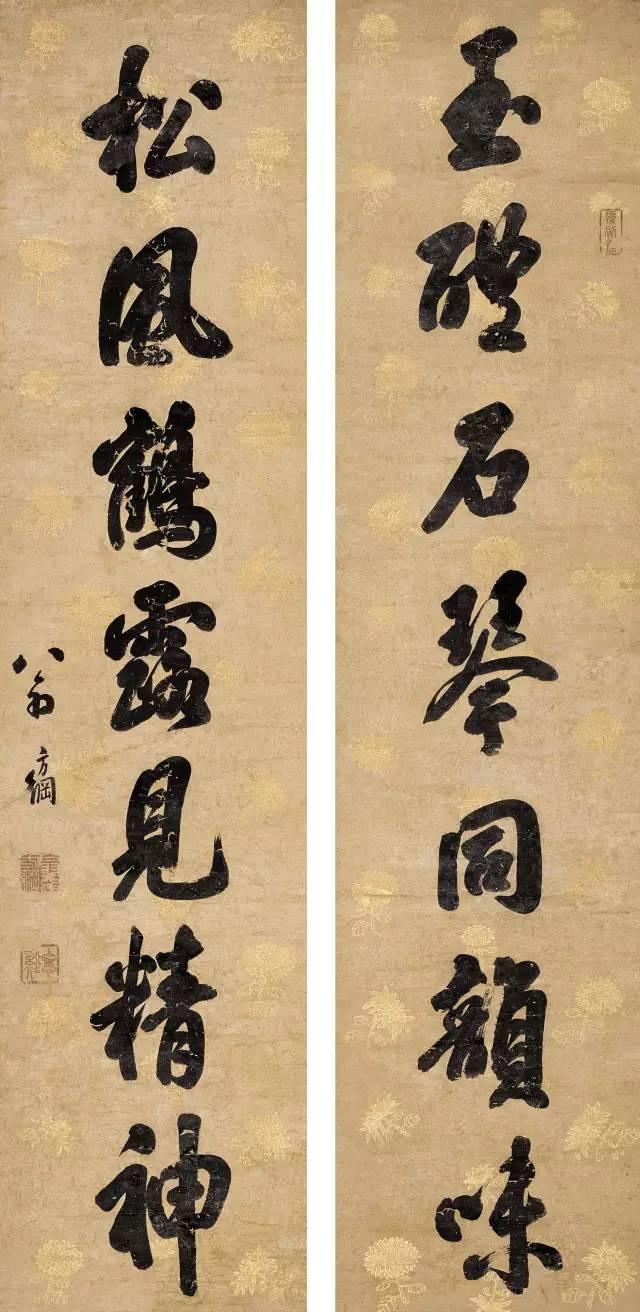 玉醴石琴同韻味
松風鶴露見精神
翁方綱